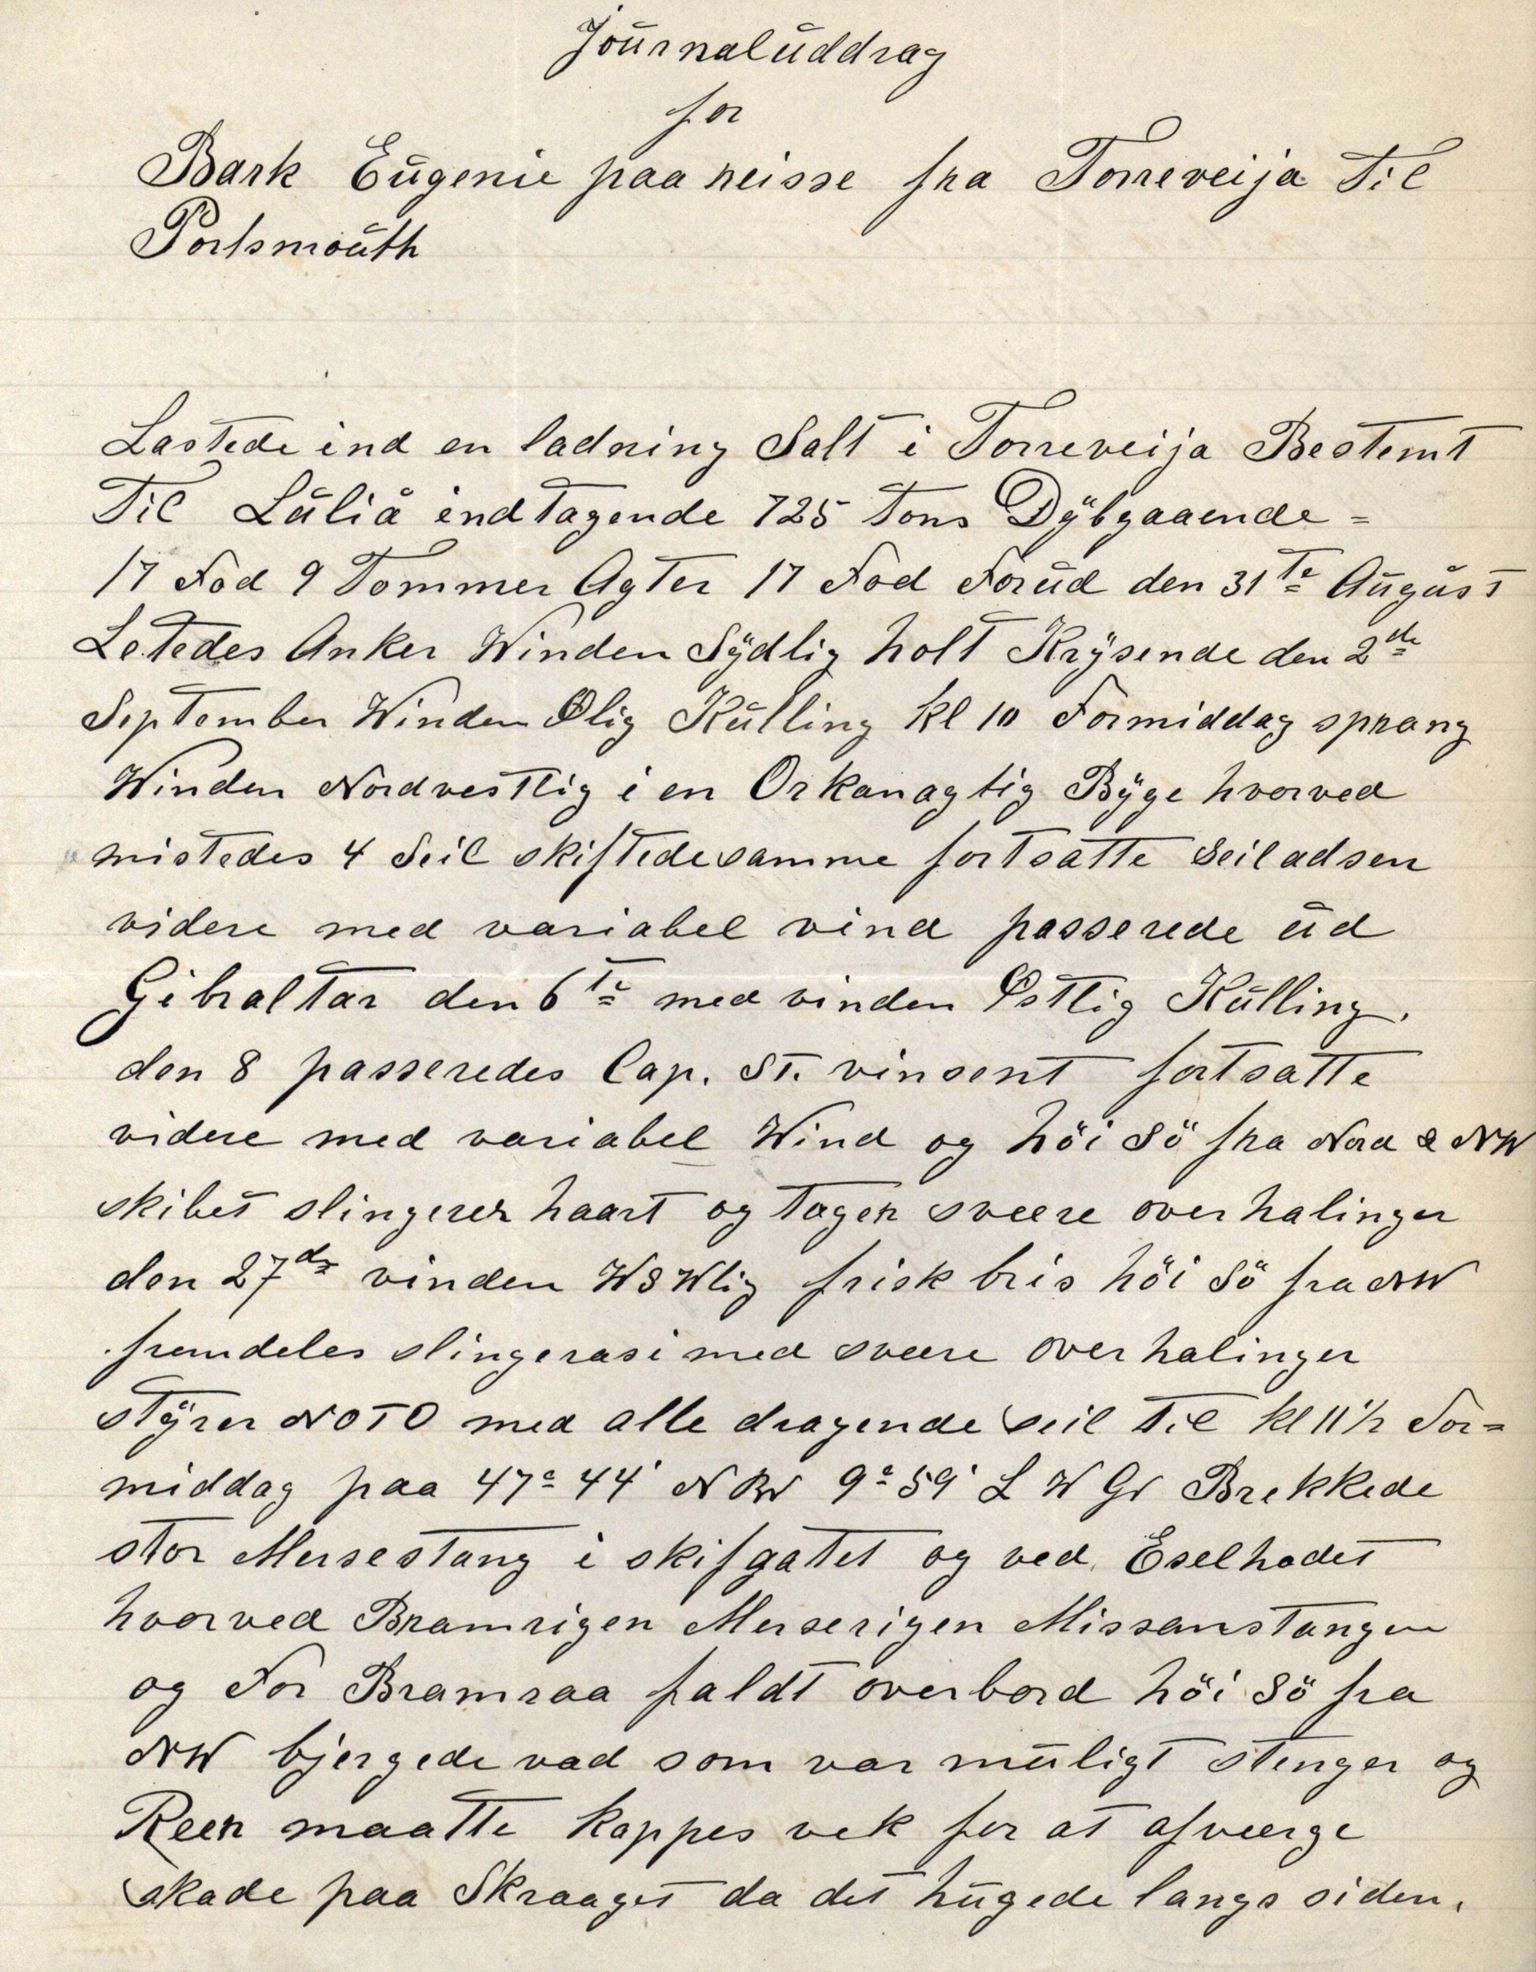 Journaluddrag
for
Bark Eugenie paa reisse fra Torreveija Til
Portsmouth
Lastede ind en ladning Salt i Torreveija Bestemt
Til Luliå indtagende 725 Tons Dÿbgaaende =
17 Fod 9 Tommer Agter 17 Fod Forud den 31te August
Letedes Anker Winden Sÿdlig holt Krÿsende den 2de
September Winden Ølig Kulling kl 10 Formiddag sprang
Winden Nordvestlig i en Orkanagtig Bÿge hvorved
mistedes 4 Seil skiftede samme fortsatte Seiladsen
videre med variabel vind passerede ud
Gibraltar den 6te med vinden Østlig Kulling.
den 8 passeredes Cap. St. vinsent fortsatte
videre med variabel Wind og höi Sö fra Nord & NW
skibet slingerer haart og tager svære overhalinger
den 27de vinden WSWlig frisk bris höi Sö fra NW
fremdeles slingerasi med svære overhalinger
stÿrer NOTO med alle dragende seil Til kl 11½ For=
middag paa 47° 44' N Br 9° 59' L W Gr Brekkede
stor Mersestang i skifgatet og ved Eselhodet
hvorved Bramrigen Merserigen Missanstangen
og For Bramraa faldt overbord höi Sö fra
NW bjergede vad som var muligt stenger og
Reer maatte kappes vek for at afværge
skade paa Skraaget da det hugede langs siden.